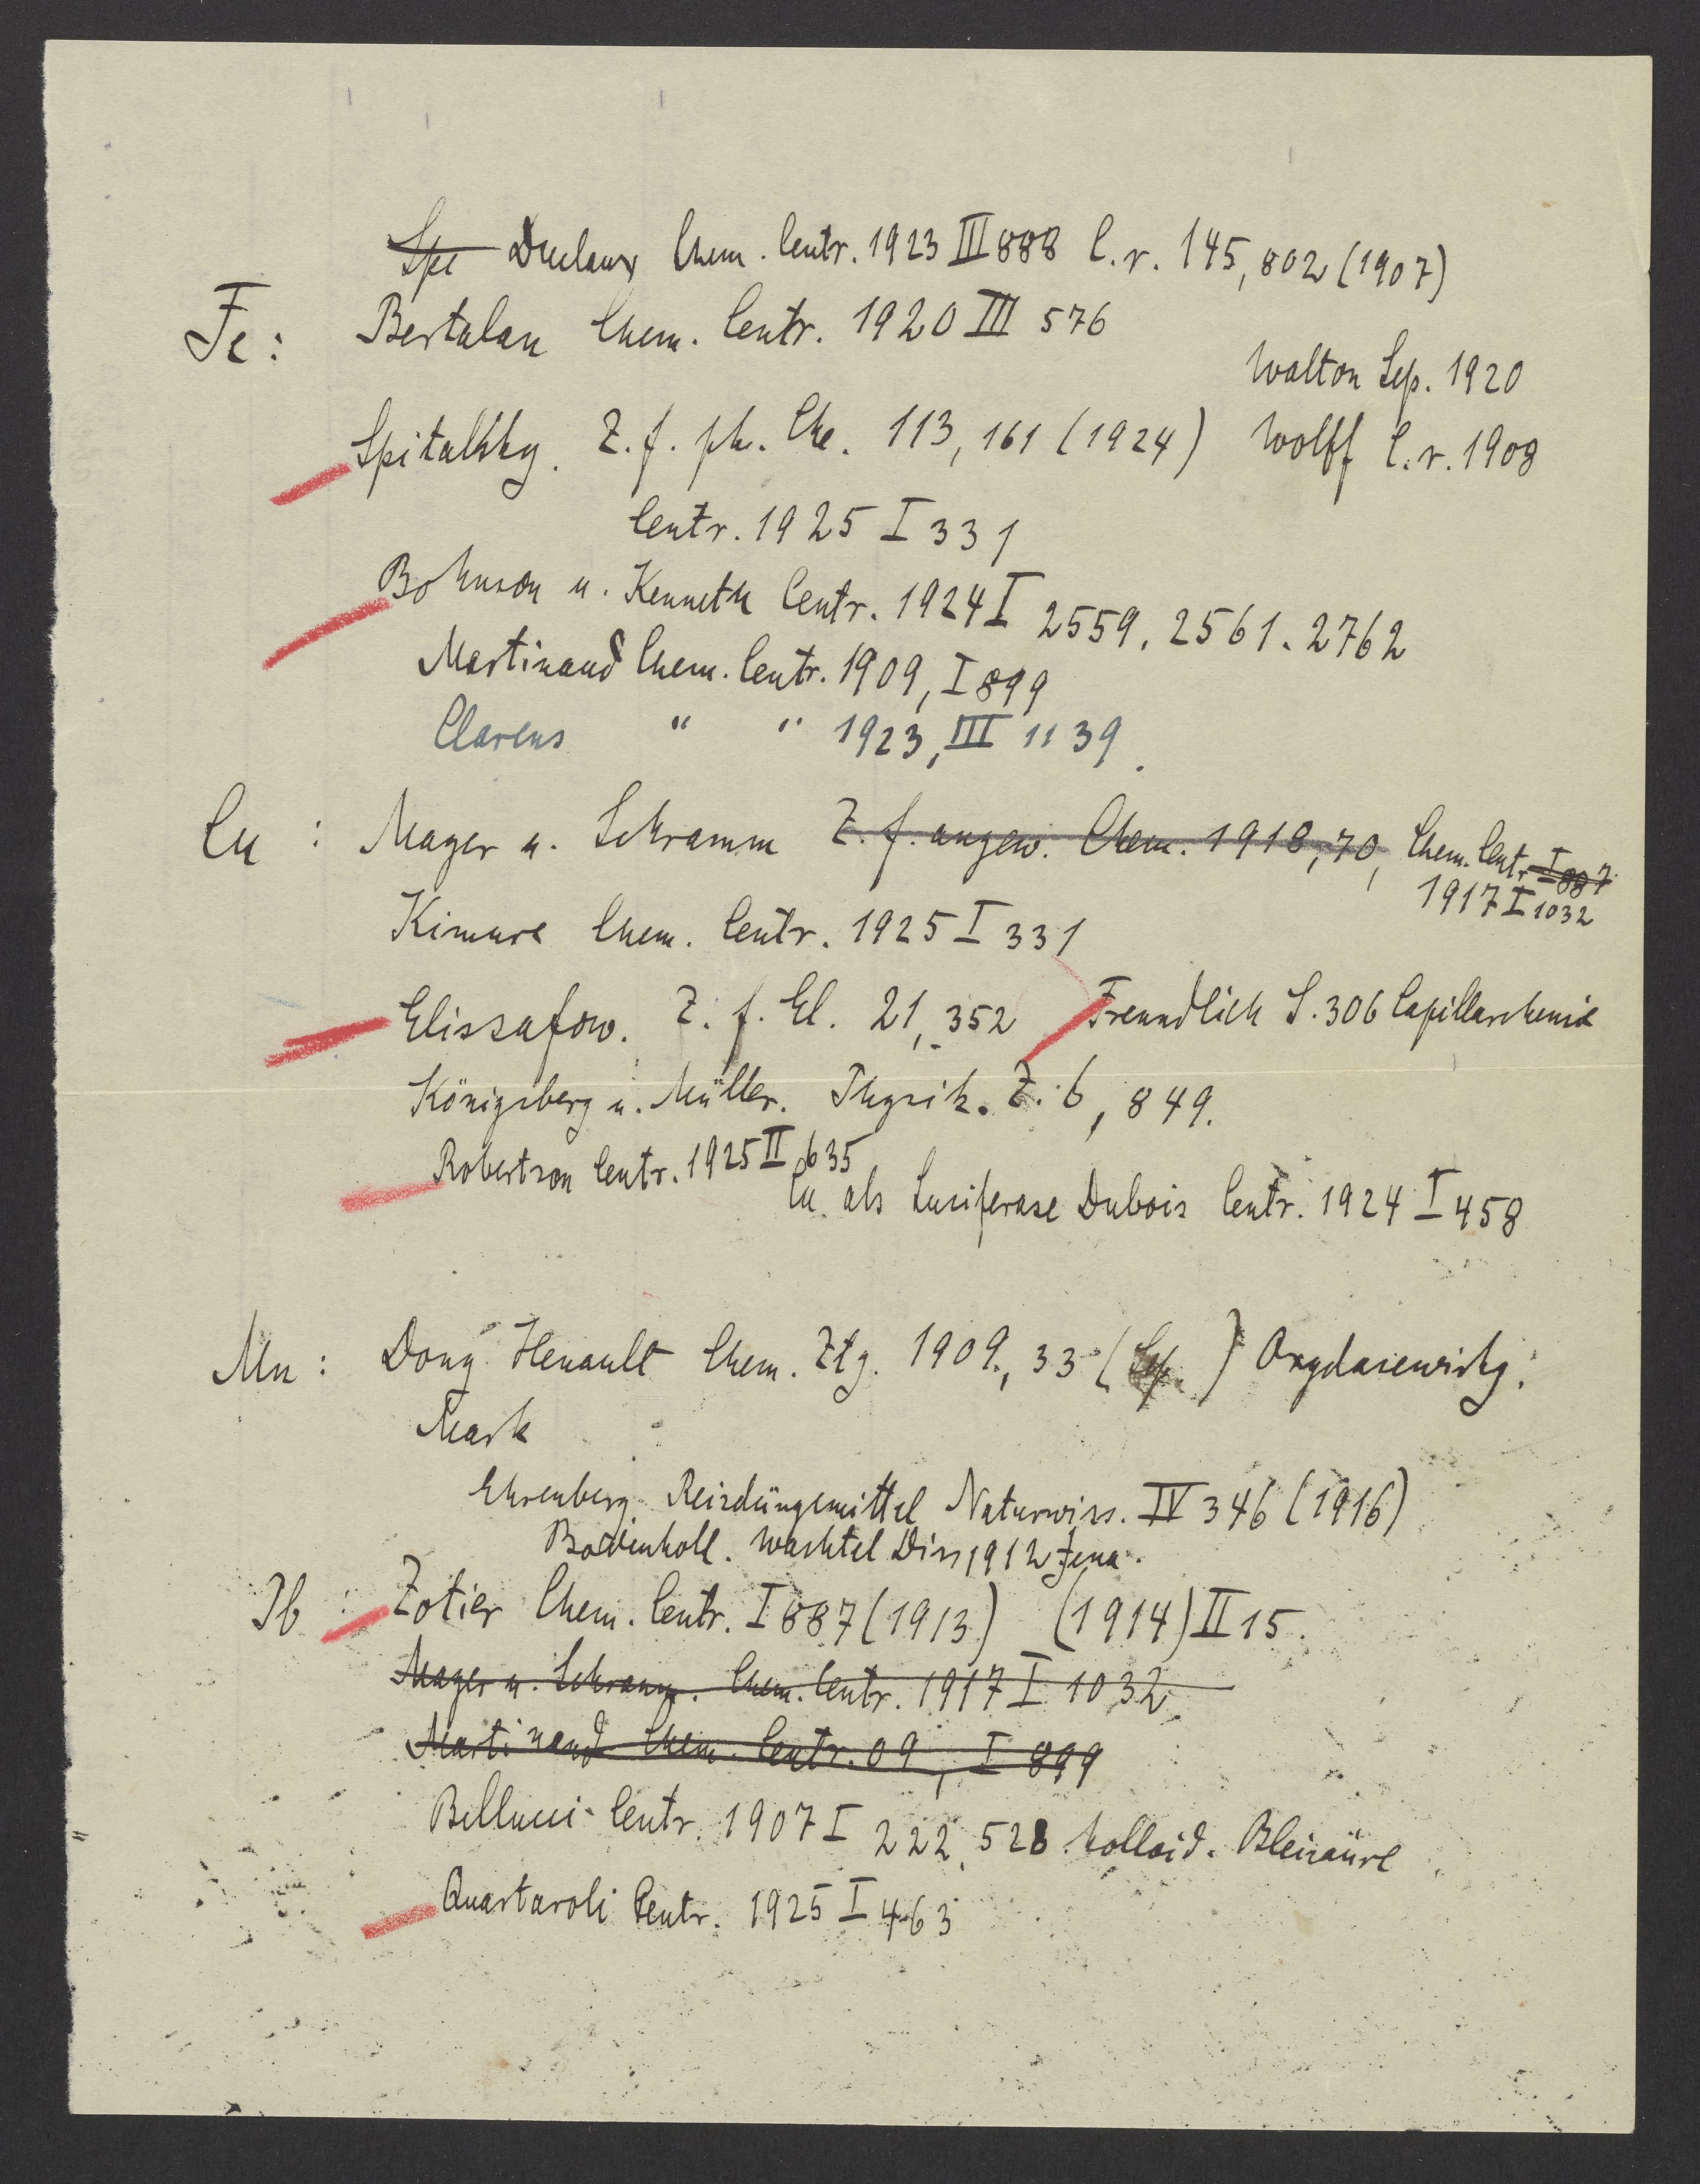 Spe Duclaux Chem. Centr. 1923 III 888 C.r. 145, 802 (1907)
Fe: Bertalan Chem. Centr. 1920 III 576
Walton Sep. 1920
Spitalsky. Z. f. ph. Che. 113, 161 (1924) Wolff C.r. 1908
Centr. 1925 I 331
Bohnson u. Kenneth Centr. 1924 I 2559, 2561. 2762
Martinand Chem. Centr. 1909, I 899
Clarens " " 1923, III 1139.
Cu: Mayer u. Schramm Z. f. angew. Chem. 1918, 70, Chem. Centr. I 887
1917 I 1032
Kimura Chem. Centr. 1925 I 331
Elissafow. Z. f. El. 21, 352 Freundlich S. 306 Capillarchemie
Königsberg u. Müller. Physik. Z. 6, 849.
Robertson Centr. 1925 II 635
Cu als Luciferase Dubois Centr. 1924 I 458
Mn: Dony Henault Chem. Ztg. 1909, 33 (Sep.) Oxydasewirkg.
Mark
Ehrenberg Reizdüngemittel Naturwiss. IV 346 (1916)
Bodenkoll. Wachtel Diss 1912 Jena.
Pb: Zotier Chem. Centr. I 887 (1913) (1914) II 15.
Mayer u. Schramm. Chem. Centr. 1917 I 1032
Martinand Chem. Centr. 09, I 899
Bellucci Centr. 1907 I 222, 528 kolloid. Bleisäure
Quartaroli Centr. 1925 I 463